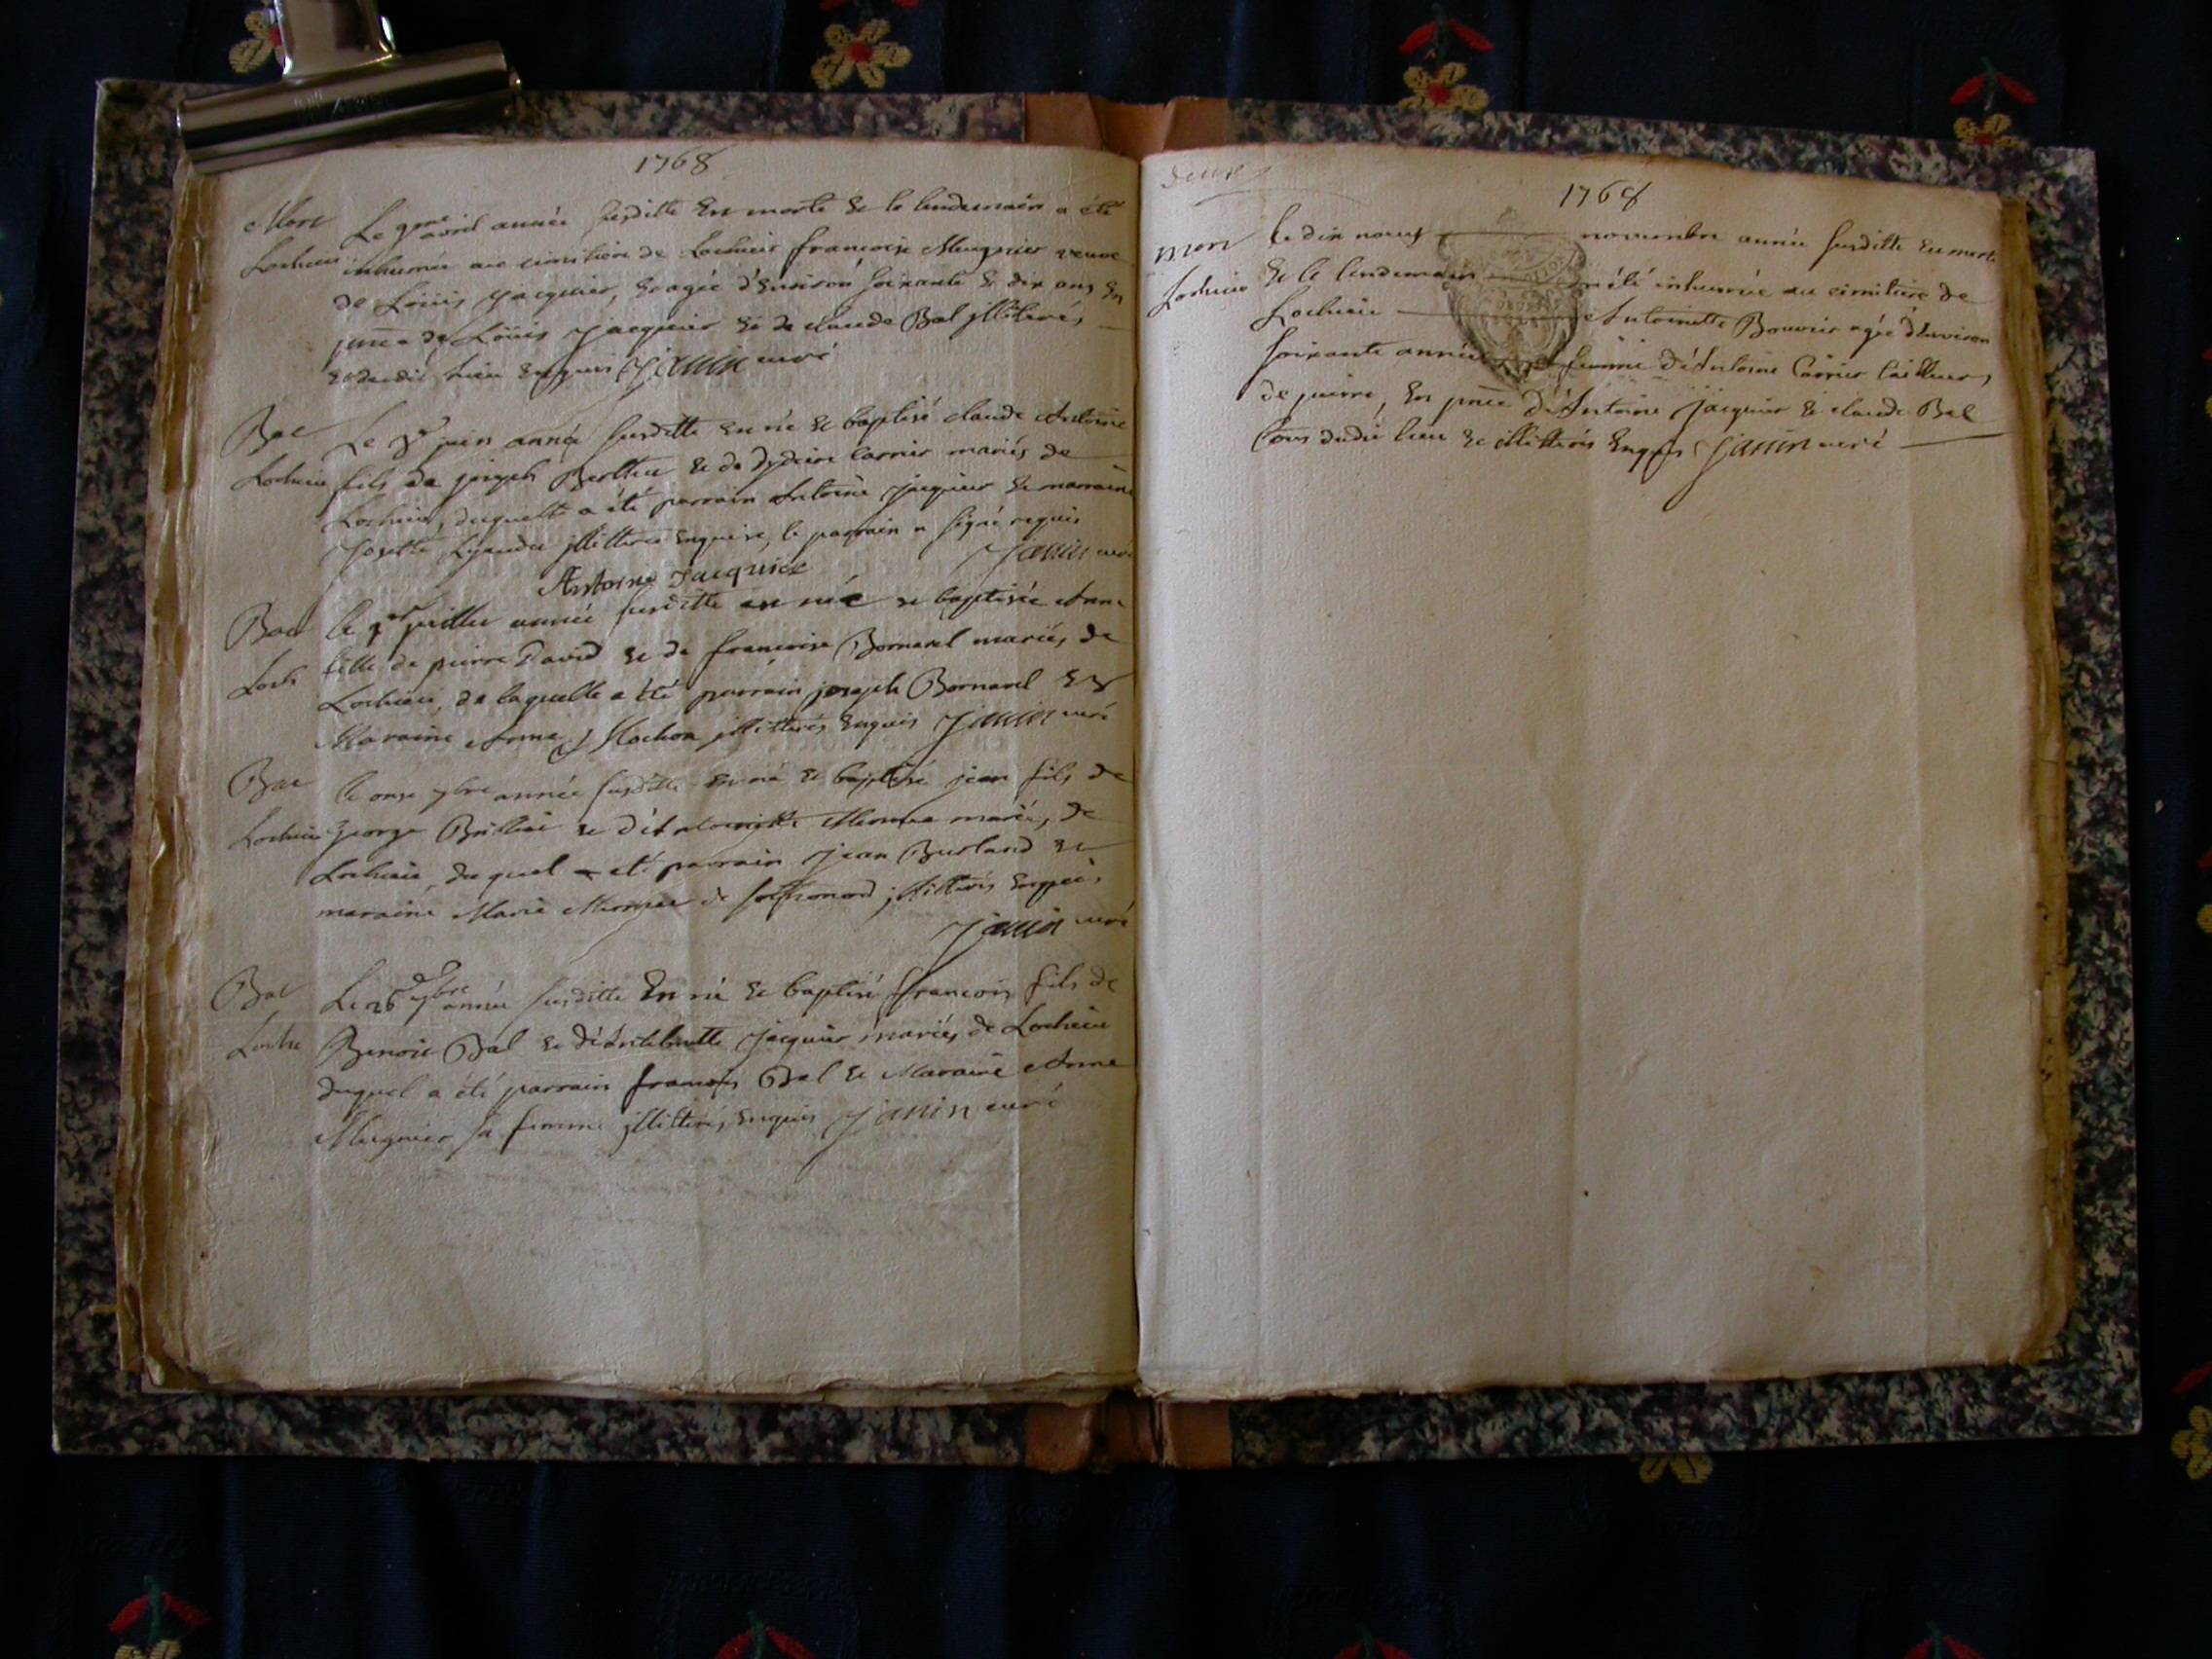 1768
Mort Le 9me avril année susditte est morte & le lendemain a été
Lochieu inhumée au cimitiere de Lochieu francoise Mugnier veuve
de Loüis Jacquier, & agée d'environ soixante & dix ans en
pnce de Loüis Jacquier & de claude Bal illiterés
dudit lieu enquis Janin curé
Bat Le juin année susditte est né & baptisé claude Antoine
Lochieu fils de joseph Berthet & de carrier mariés de
Lochieu, duquel a été parrain Antoine Jacquier & marraine
Josette illitterée enquise, le parrain a signé requis
Antoine Jacquier Janin curé
Bat le juillet année susditte est née & baptisée Anne
Loch fille de pierre David & de francoise Bornarel mariés de
Lochieu, de laquelle a été parrain joseph Bornarel &
Maraine Anne Mochon illitterés enquis Janin curé
Bat le onze 7bre année susditte est né & baptisé jean fils de
Lochieu George & d'Antoinette mariés de
Lochieu, duquel a été parrain Jean Burland &
maraine Marie de illitterés enquis
Janin curé
Bat Le 26 7bre année susditte est né & baptisé francois fils de
Loche Benoit Bal & d'Antelmette Jacquier mariés de Lochieu
duquel a été parrain francois Bal & Maraine Anne
Mugnier sa femme illitterés enquis Janin curé
1768
mort le dix neuf novembre année susditte est morte
Lochieu & le lendemain a été inhumée au cimitiere de
Lochieu Antoinette Bouvier agée d'environ
soixante années femme d'Antoine Carrier tailleur
de pierre, en pnce d'Antoine Jacquier & claude Bal
tous dudit lieu & illitterés enquis Janin curé